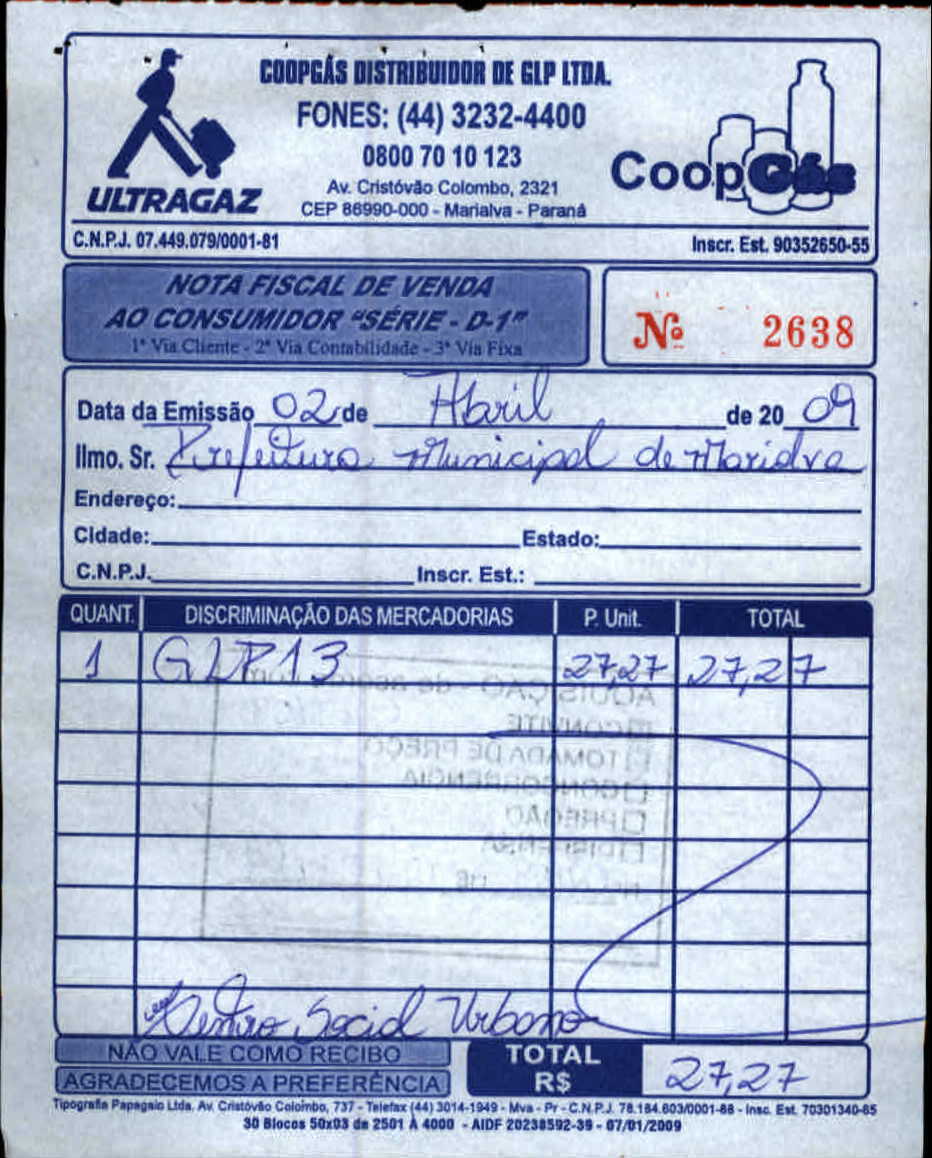 COOPGÁS DISTRIBUIDOR DE GLP LTDA.
FONES: (44) 3232-4400
0800 70 10 123
Av. Cristóvão Colombo, 2321
CEP 86990-000 - Marialva - Paraná
ULTRAGAZ
CoopGás
C.N.P.J. 07.449.079/0001-81
Inscr. Est. 90352650-55
NOTA FISCAL DE VENDA
AO CONSUMIDOR "SÉRIE - D-1"
1ª Via Cliente - 2ª Via Contabilidade - 3ª Via Fixa
Nº 2638
Data da Emissão 02 de Abril de 20 09
Ilmo. Sr. Prefeitura Municipal de Marialva
Endereço:
Cidade: Estado:
C.N.P.J. Inscr. Est.:
QUANT. DISCRIMINAÇÃO DAS MERCADORIAS P. Unit. TOTAL
1 GLP13 27,27 27,27
AQUISIÇÃO - de acordo com
CONVITE
TOMADA DE PREÇO
CONCORRENCIA
PREGÃO
Centro Social Urbano
NÃO VALE COMO RECIBO
AGRADECEMOS A PREFERÊNCIA
TOTAL R$ 27,27
Tipografia Papagaio Ltda. Av. Cristóvão Colombo, 737 - Telefax (44) 3014-1949 - Mva - Pr - C.N.P.J. 78.184.603/0001-88 - Insc. Est. 70301340-65
30 Blocos 50x03 de 2501 À 4000 - AIDF 20238592-39 - 07/01/2009